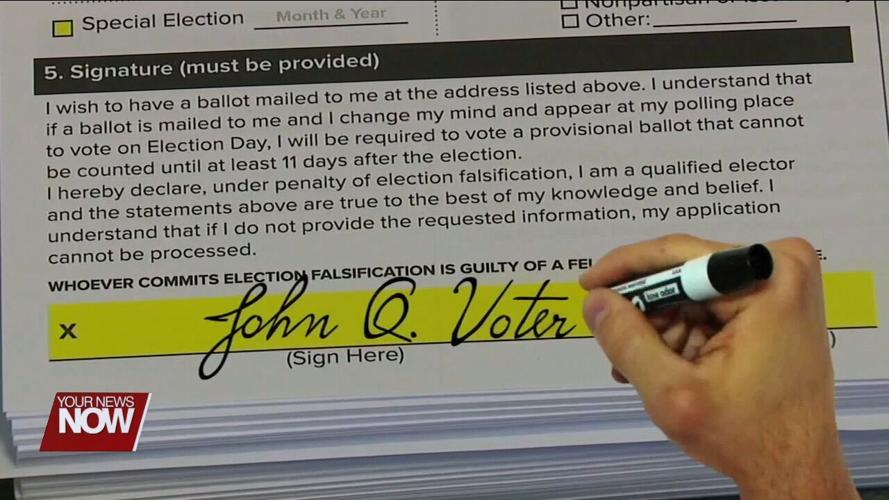 Special Election
Month & Year
Other:
5. Signature (must be provided)
I wish to have a ballot mailed to me at the address listed above. I understand that
if a ballot is mailed to me and I change my mind and appear at my polling place
to vote on Election Day, I will be required to vote a provisional ballot that cannot
be counted until at least 11 days after the election.
I hereby declare, under penalty of election falsification, I am a qualified elector
and the statements above are true to the best of my knowledge and belief. I
understand that if I do not provide the requested information, my application
cannot be processed.
WHOEVER COMMITS ELECTION FALSIFICATION IS GUILTY OF A
X John Q. Voter
(Sign Here)
low odor
YOUR NEWS
NOW